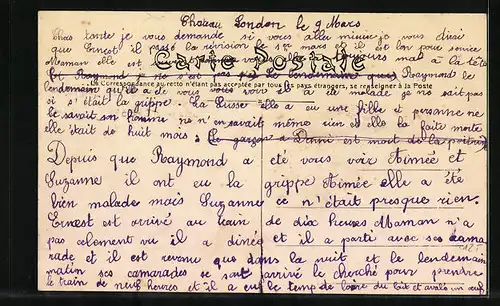 Chateau London le 9 Mars
tarde je vous demande si vous allez mieux je vous dirai
que Ernest il passé la révision le 1er mars et il est bon pour service
Maman elle est toujours mal a la tête
Carte Postale
Raymond le lendemain que Raymond le
La Correspondance au recto n'étant pas acceptée par tous les pays étrangers, se renseigner à la Poste
lendemain qu'il a été vous voir il malade je ne sait pas
si s'était la grippe. La Russe elle a eu une fille et personne ne
le savait son homme ne n'en savait même rien et elle la faite morte
elle était de huit mois. Le garçon a Denni est mort de la poitrine
Depuis que Raymond a été vous voir Aimée et
Suzanne il ont eu la grippe Aimée elle a été
bien malade mais Suzanne ce n'était presque rien.
Ernest est arrivé au train de dix heures Maman n'a
pas celement vu il a diné et il a parti avec ses cama
rade et il est revenu que dans la nuit et le lendemain
matin ses camarades se sont arrivé le cherché pour prendre
le train de neuf heures et il a eu le temp de boire du lait et avalé un œuf